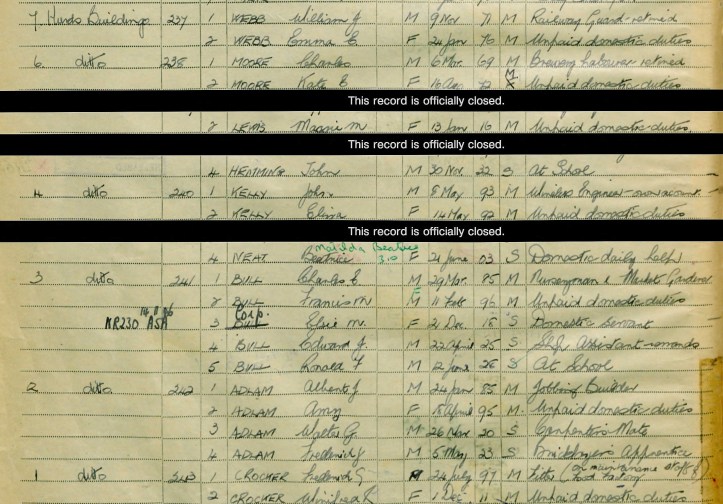 7 Hurds Buildings 237 1 WEBB William J M 9 Nov 71 M Railway Guard - retired
2 WEBB Emma E F 24 Jan 76 M Unpaid domestic duties
6 ditto 238 1 MOORE Charles M 6 Mar 69 M Brewery labourer retired
2 MOORE Kate E F 16 72 M Unpaid domestic duties
This record is officially closed.
2 LEWIS Maggie M F 13 Jan 16 M Unpaid domestic duties
This record is officially closed.
4 HEMMING John M 30 Nov 22 S At School
4 ditto 240 1 KELLY John M 8 May 93 M Wireless Engineer - own account
2 KELLY Eliza F 14 May 92 M Unpaid domestic duties
This record is officially closed.
Matilda Beatrice
4 NEAT Beatrice 3.10 F 21 June 03 S Domestic daily help
3 ditto 241 1 BULL Charles E M 29 Mar 85 M Nurseryman & Market Gardener
2 BULL Francis M F M 11 Feb 96 M Unpaid domestic duties
KR230 ASA Corp.
3 BULL Elsie M. F 21 Dec 18 S Domestic Servant
4 BULL Edward J. M 22 April 25 S Assistant
5 BULL Ronald F M 12 June 26 S At School
2 ditto 242 1 ADLAM Albert J M 24 Jan 85 M Jobbing Builder
2 ADLAM Amy F 18 April 95 M Unpaid domestic duties
3 ADLAM Walter G. M 26 Mar 20 S Carpenters Mate
4 ADLAM Frederick J M 5 May 23 S Bricklayers Apprentice
1 ditto 243 1 CROCKER Frederick G M 24 July 97 M Fitter (on maintenance staff)
2 CROCKER Winifred F 1 Dec 11 M Unpaid domestic duties